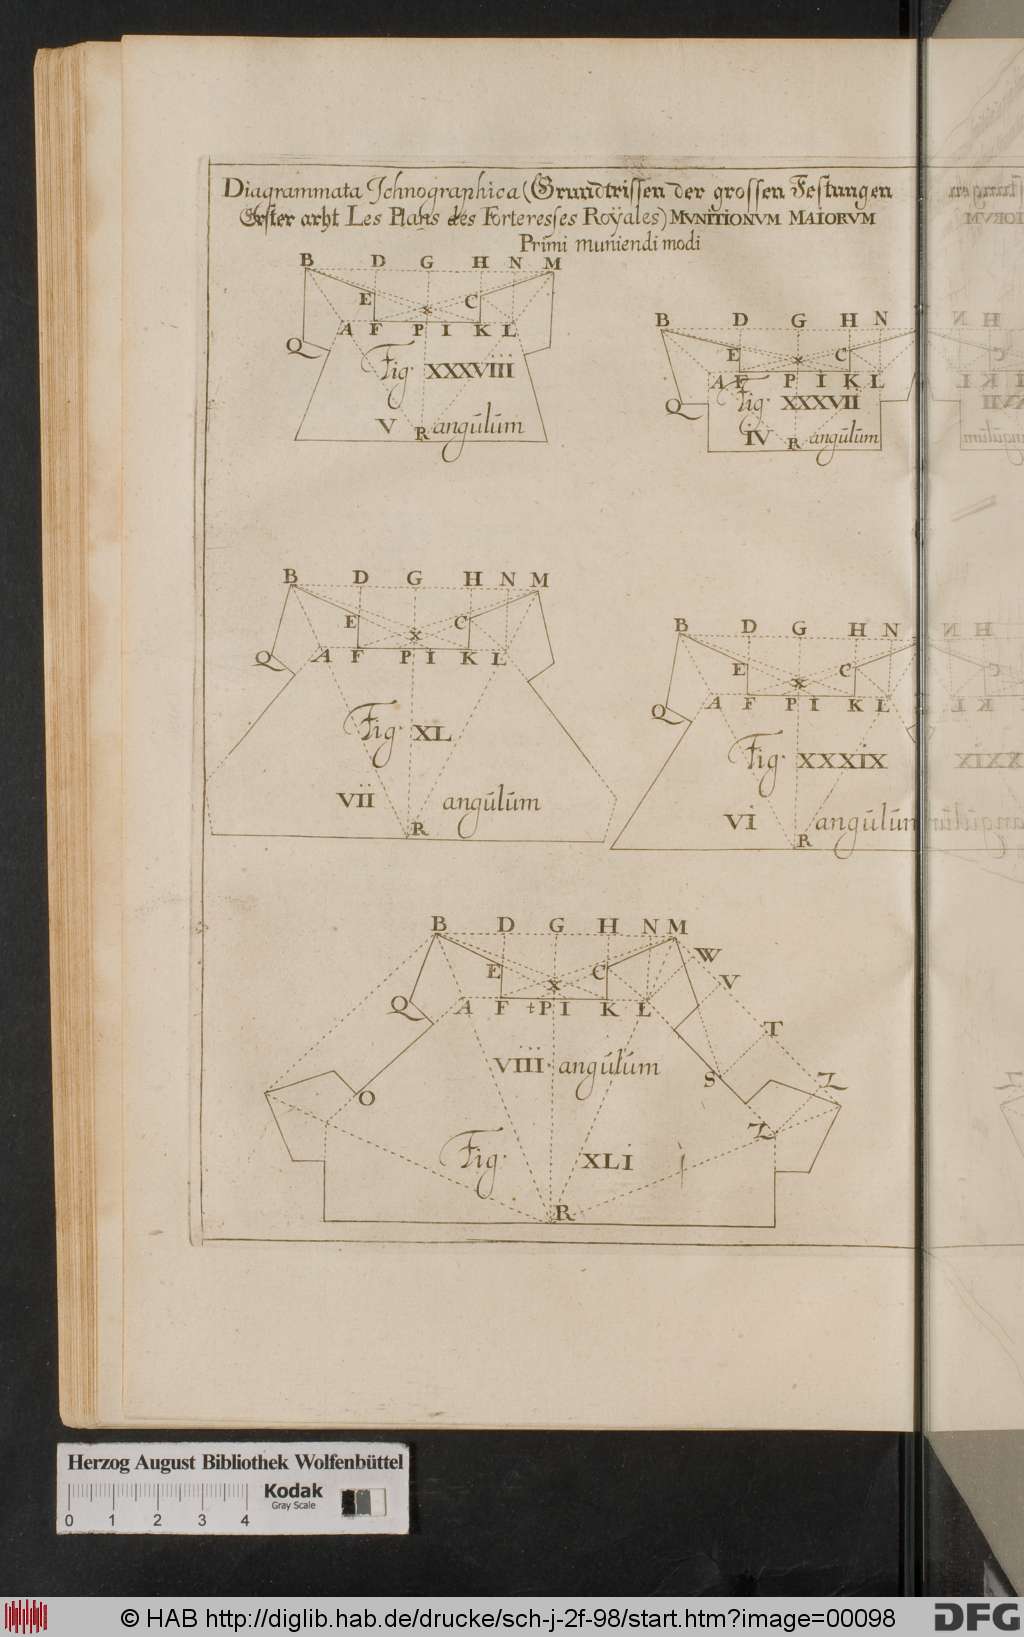 Diagrammata Ichnographica (Grundtrissen der grossen Festungen
Erster arht Les Plans des Forteresses Royales) MVNITIONVM MAIORVM
Primi muniendi modi
B D G H N M
E x C
A F P I K L
Q
Fig. XXXVIII
V R angulum
B D G H N
E x C
A F P I K L
Q
Fig. XXXVII
IV R angulum
B D G H N M
E x C
Q A F P I K L
Fig. XL
VII angulum
R
B D G H N
E x C
A F P I K L
Q
Fig. XXXIX
VI angulum
R
B D G H N M
W
E x C
V
Q A F P I K L
T
VIII. angulum
S Z
O
Z
Fig. XLI
R
Herzog August Bibliothek Wolfenbüttel
Kodak
Gray Scale
0 1 2 3 4
© HAB http://diglib.hab.de/drucke/sch-j-2f-98/start.htm?image=00098
DFG